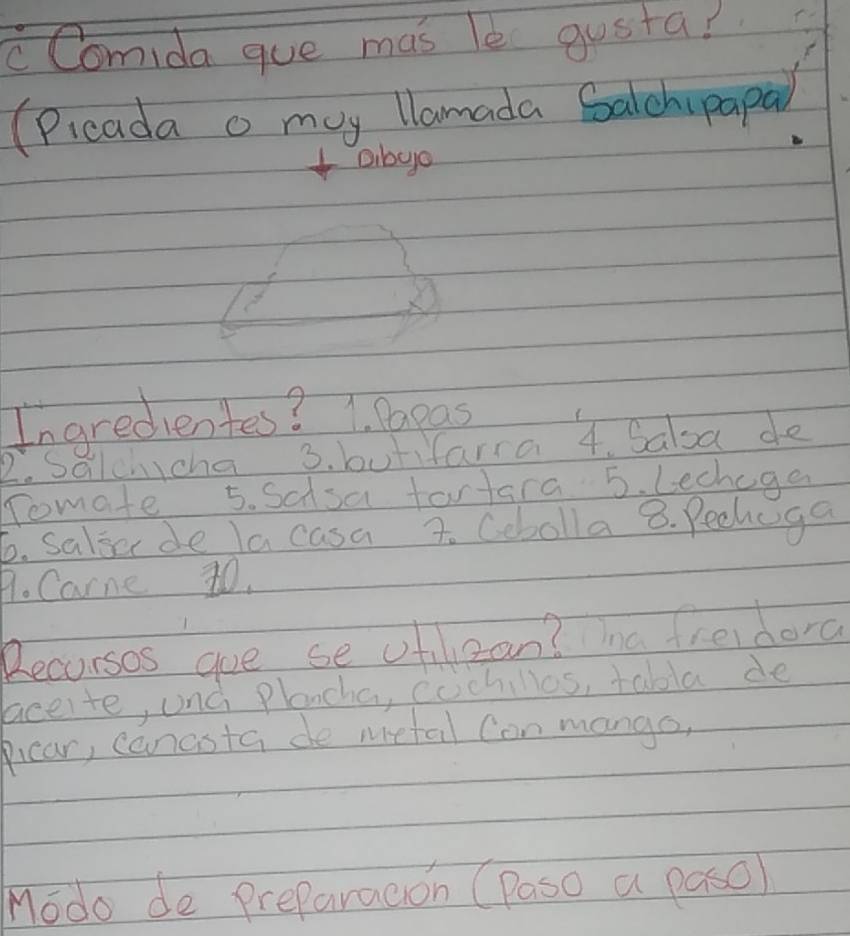 ¿Comida que más le gusta?
(Picada o muy llamada Salchipapa)
↓ Dibujo
Ingredientes? 1. Papas
2. Salchicha 3. butifarra 4. Salsa de
Tomate 5. Salsa tartara 5. Lechuga
6. Salsa de la casa 7. Cebolla 8. Pechuga
9. Carne 10.
Recursos que se utilizan? Una freidora
aceite, una plancha, cuchillos, tabla de
picar, canasta de metal con mango,
Módo de Preparación (Paso a paso)